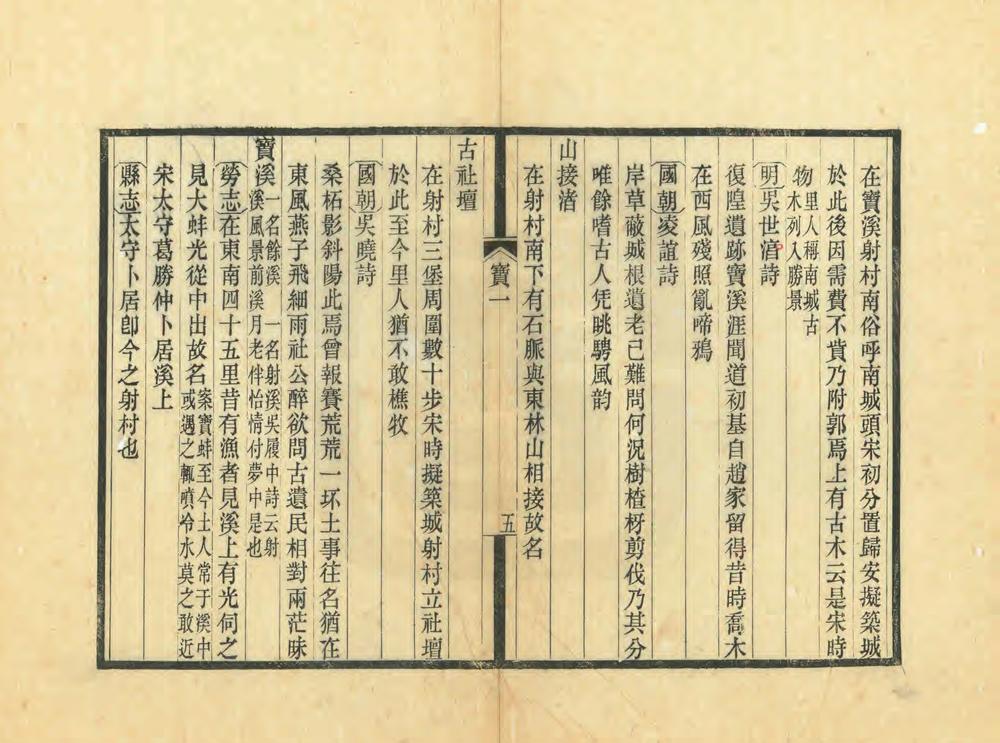 在寶溪射村南俗呼南城頭宋初分置歸安擬築城
於此後因需費不貲乃附郭焉上有古木云是宋時
物里人稱南城古
木列入勝景
明吳世涵詩
復隍遺跡寶溪涯聞道初基自趙家留得昔時喬木
在西風殘照亂啼鴉
國朝凌誼詩
岸草蔽城根遺老已難問何況樹楂枒剪伐乃其分
唯餘嗜古人凭眺騁風韵
山接渚
在射村南下有石脈與東林山相接故名
寶一
五
古社壇
在射村三堡周圍數十步宋時擬築城射村立社壇
於此至今里人猶不敢樵牧
國朝吳曉詩
桑柘影斜陽此焉曾報賽荒荒一坏土事往名猶在
東風燕子飛細雨社公醉欲問古遺民相對兩茫昧
寶溪一名餘溪 一名射溪吳履中詩云射
溪風景前溪月老伴怡情付夢中是也
勞志在東南四十五里昔有漁者見溪上有光伺之
見大蚌光從中出故名案寶蚌至今土人常于溪中
或遇之輒噴冷水莫之敢近
宋太守葛勝仲卜居溪上
縣志太守卜居卽今之射村也